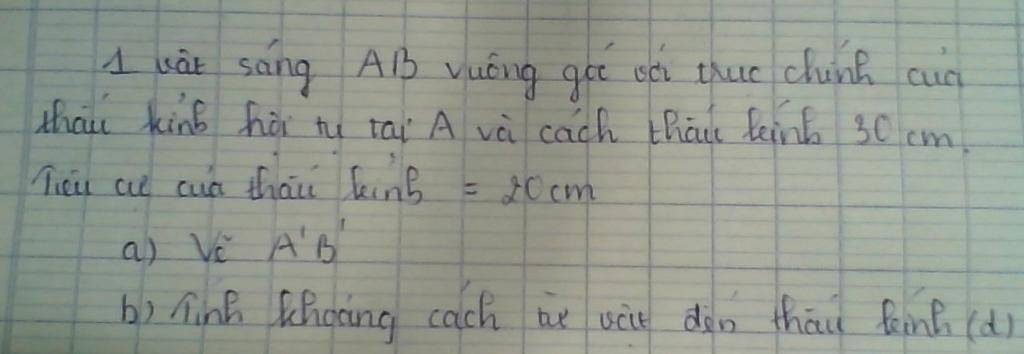 1 vật sáng AB vuông góc với trục chính của
thấu kính hội tụ tại A và cách thấu kính 30 cm.
Tiêu cự của thấu kính = 20 cm
a) Vẽ A'B'
b) Tính khoảng cách từ vật đến thấu kính (d)